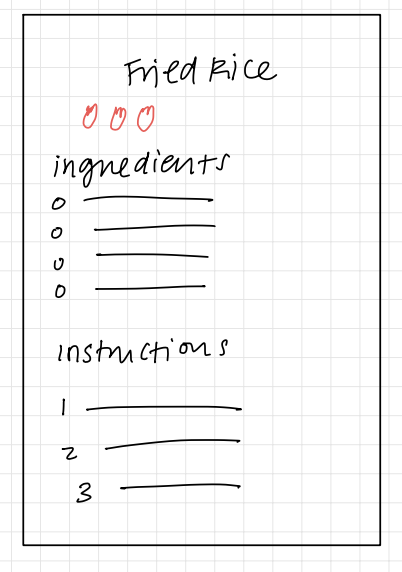 Fried Rice
ingredients
Instructions
1
2
3